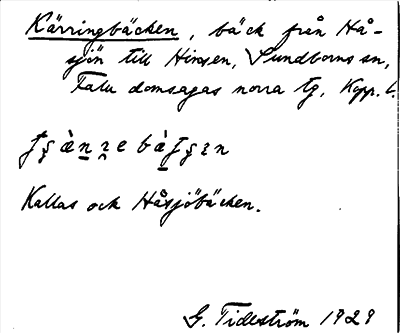 Kärringbäcken, bäck från Hå-
sjön till Hinsen, Sundborns sn,
Falu domsagas norra tg, Kopp. l.
Kallas ock Håsjöbäcken.
G. Tideström 1929